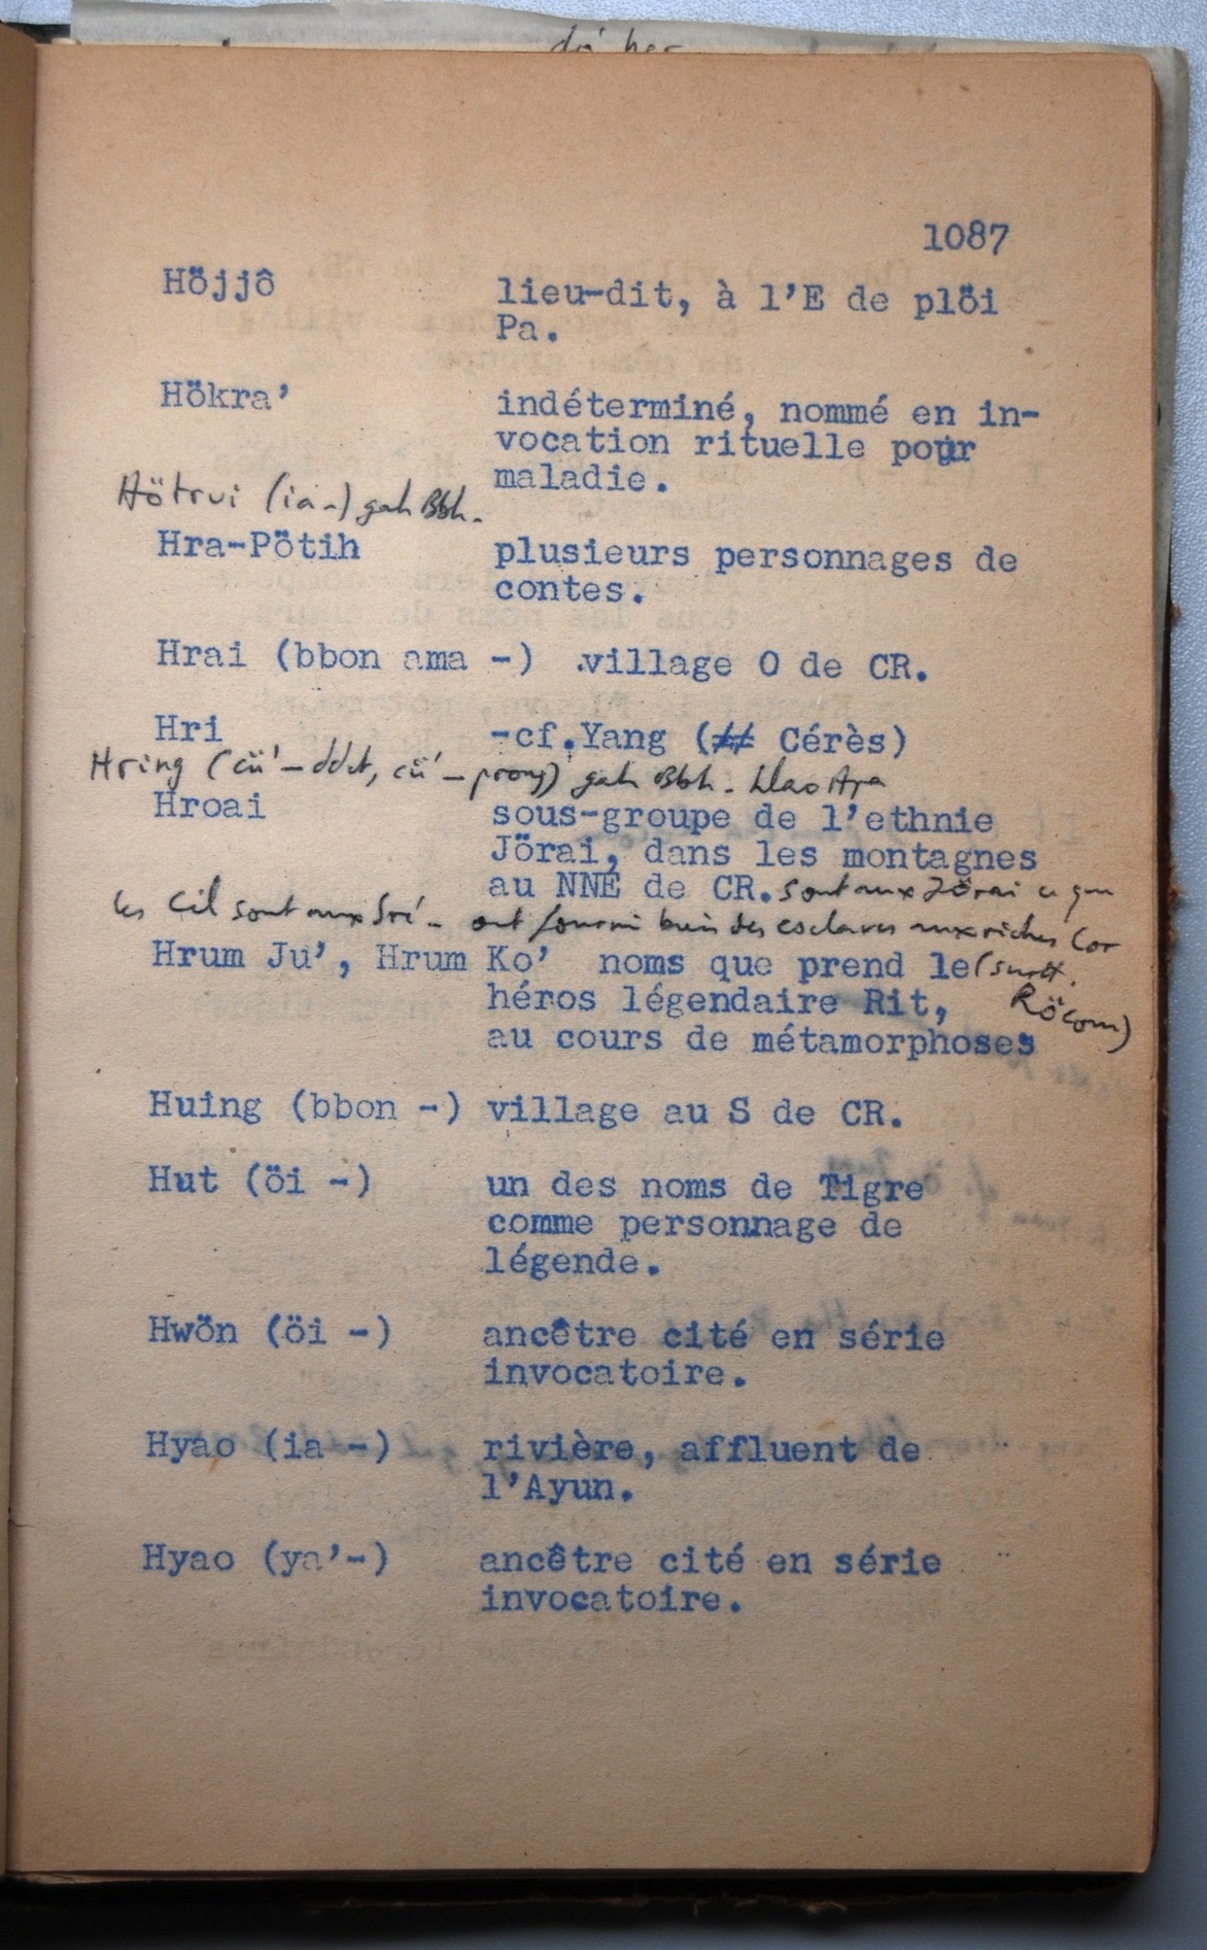 dô' her
1087
Höjjô lieu-dit, à l'E de plöi
Pa.
Hökra' indéterminé, nommé en in-
vocation rituelle pour
maladie.
Hötrui (ia -) gah Bbh.
Hra-Pötih plusieurs personnages de
contes.
Hrai (bbon ama -) .village O de CR.
Hri -cf.Yang (≠≠ Cérès)
Hring (cü' - ddet, cü' - prong) gah Bbh -
Hroai sous-groupe de l'ethnie
Jörai, dans les montagnes
au NNE de CR. sont aux Jörai ce que
les Cil sont aux Sré - ont fourni bien des esclaves aux riches Cor
Hrum Ju', Hrum Ko' noms que prend le (surtt.
héros légendaire Rit, Röcom)
au cours de métamorphoses
Huing (bbon -) village au S de CR.
Hut (öi -) un des noms de Tigre
comme personnage de
légende.
Hwön (öi -) ancêtre cité en série
invocatoire.
Hyao (ia -) rivière, affluent de
l'Ayun.
Hyao (ya'-) ancêtre cité en série
invocatoire.